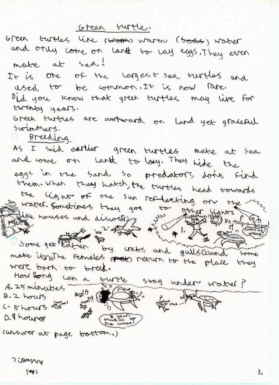 Green turtle.
Green turtles like warm water
and only come on land to lay eggs. They even
mate at sea!
It is one of the largest sea turtles and
used to be common. It is now rare.
Did you know that green turtles may live for
twenty years.
Green turtles are awkward on land yet graceful
swimmers.
Breeding.
As I said earlier green turtles mate at sea
and come on land to lay. They hide the
eggs in the sand so predators dont find
them. When they hatch, the turtles head towards
the light of the sun reflecting on the
water. Sometimes they go to other lights
like houses and
Some get eaten by crabs and gulls and some
make it. The females return to the place they
were born to breed.
How long can a turtle stay under water?
A. 25 minutes
B. 2 hours
C. 5 hours
D. 1 hour
(answer at page bottom.)
1.